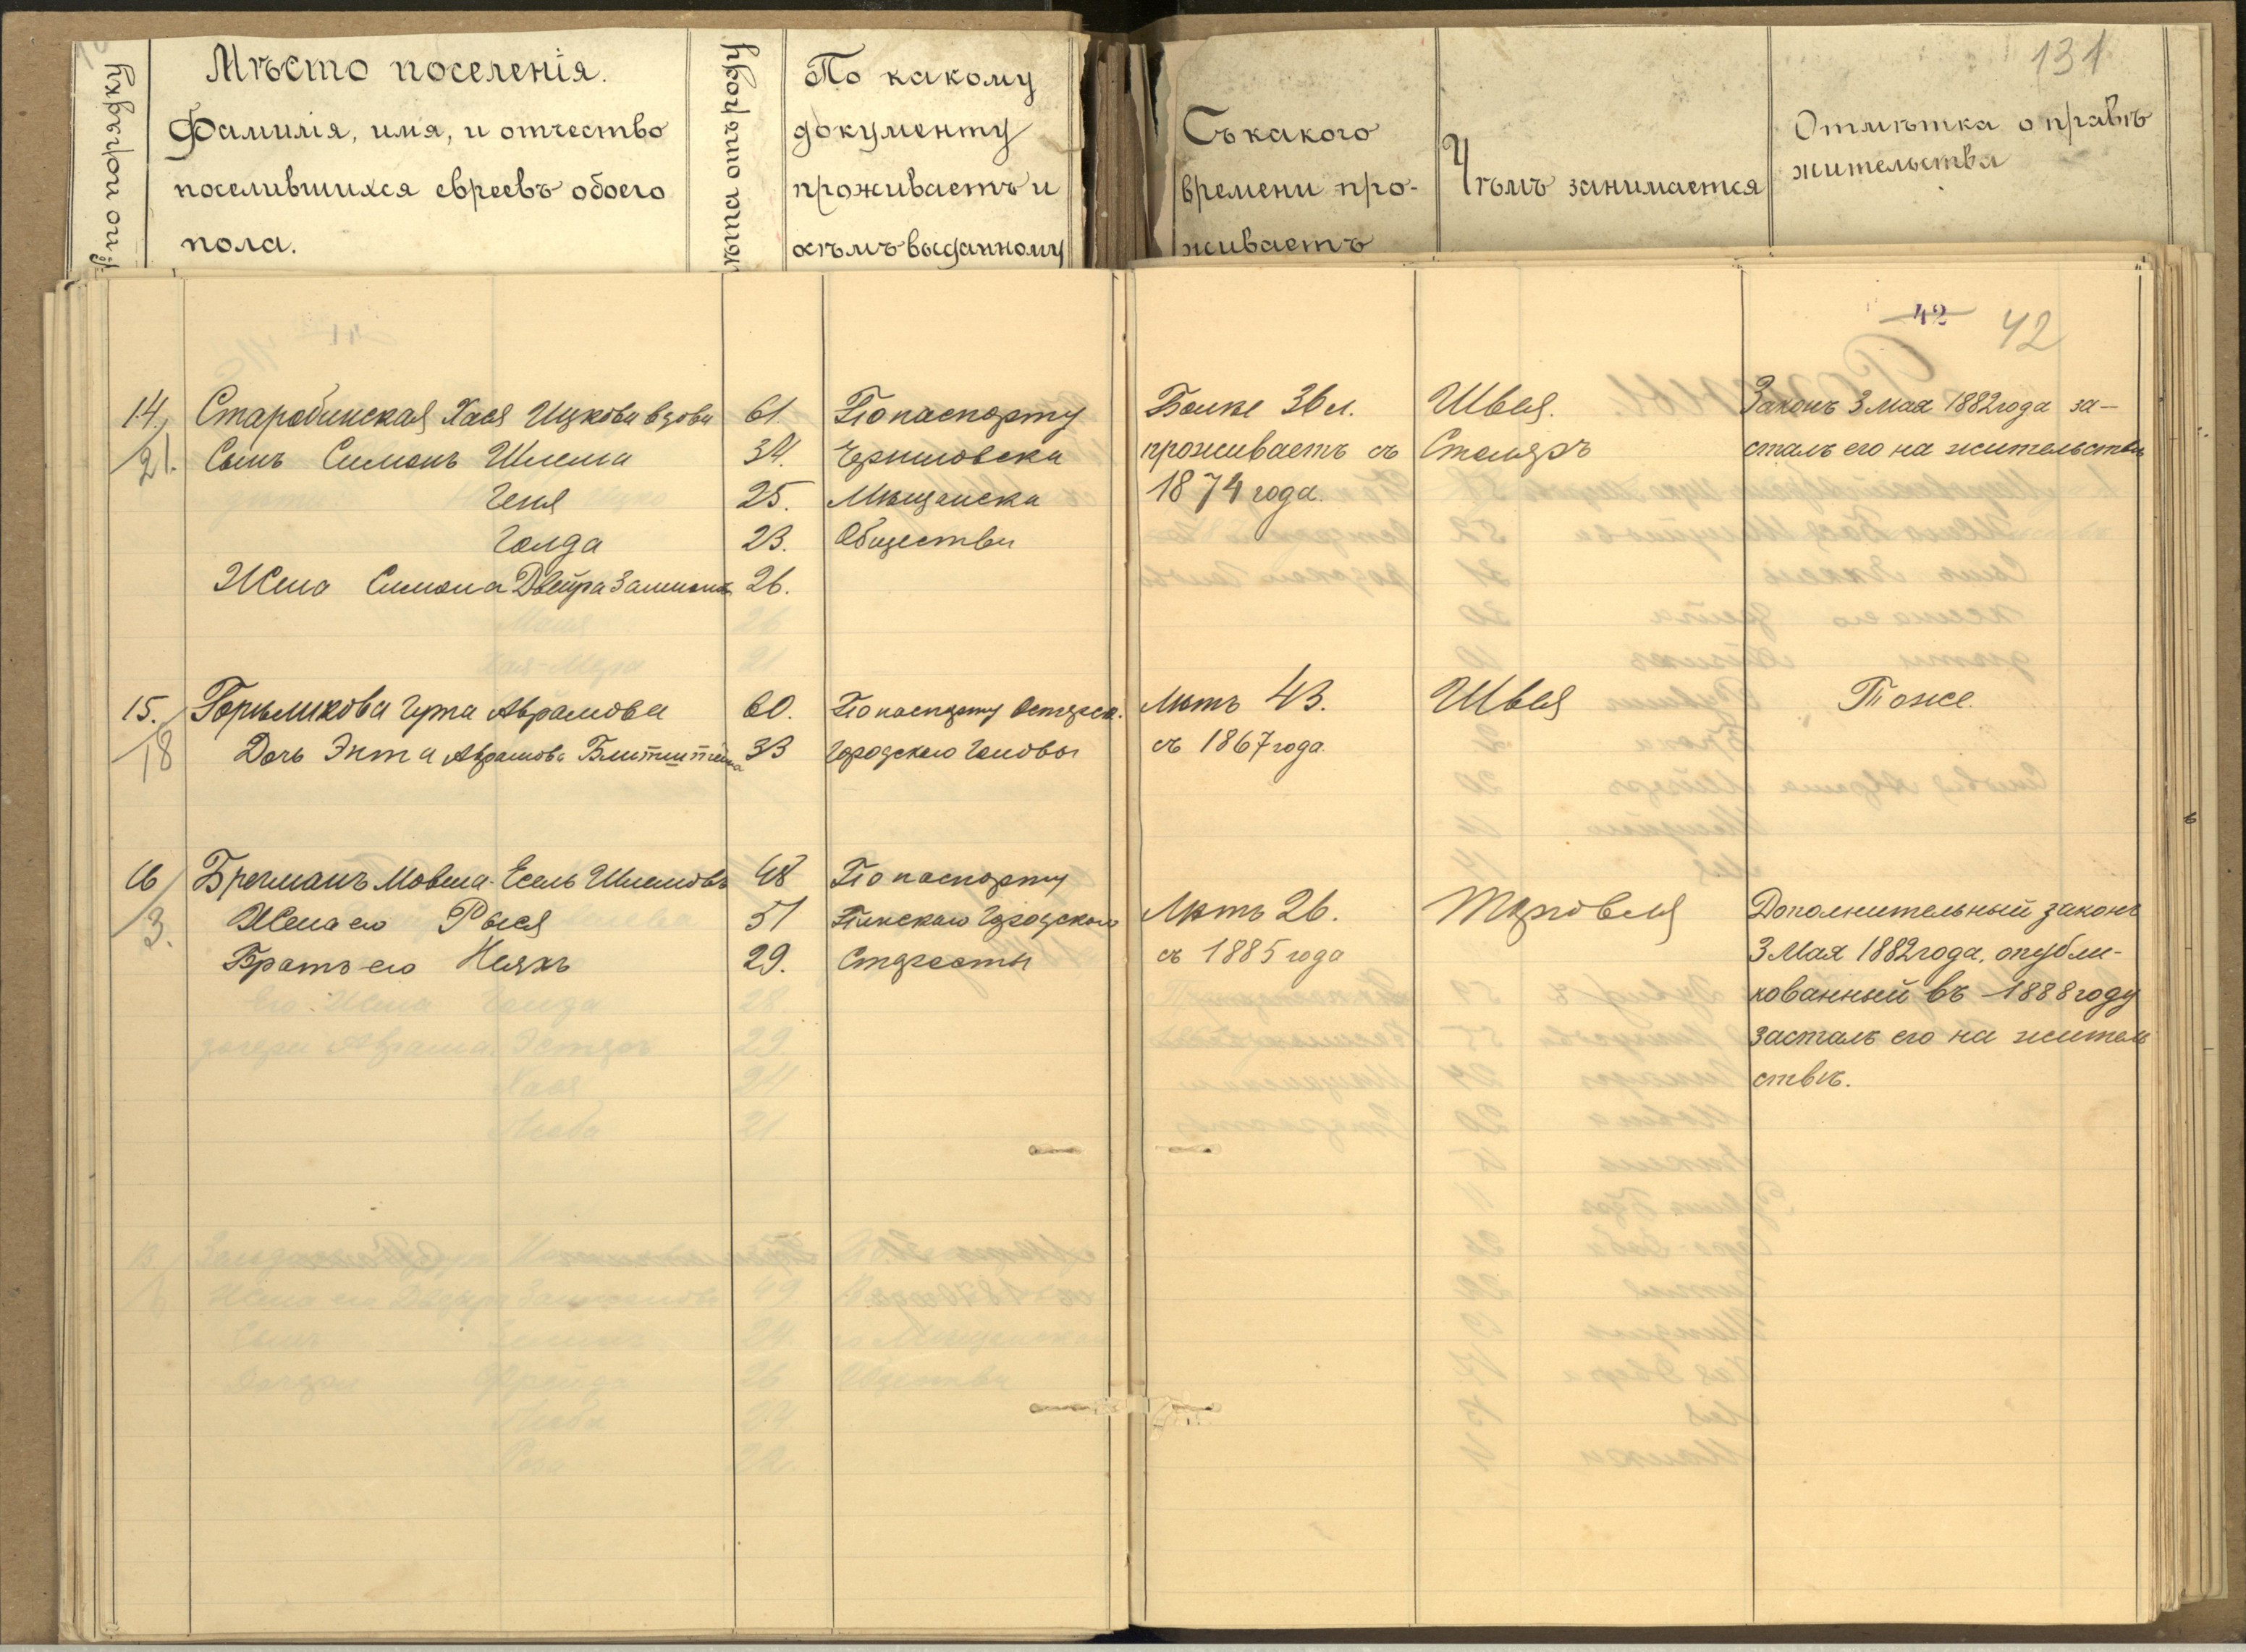 131
№ по порядку
Мѣсто поселенія.
Фамилія, имя, и отчество
поселившихся евреевъ обоего
пола.
лѣта отъ роду
По какому
документу
проживаетъ и
кѣмъ выданному
Съ какого
времени про-
живаетъ
Чѣмъ занимается
Отмѣтка о правѣ
жительства
42 42
14. Старобинская Хася Ицкова вдова 61. По паспорту Болѣе 36 л. Швея. Законъ 3 мая 1882 года за-
21. Сынъ Симонъ Шлема 34. Черниговска проживаетъ съ Столяръ сталъ его на жительствѣ
Геня 25. Мѣщанска 1874 года.
Голда 23. Общества
Жена Симона Двейра 26.
15. Горѣликова Гута Абрамова 60. По паспорту Остерск. Лѣтъ 43. Швея Тоже.
18 Дочь Энта Абрамова 33 Городского Головы съ 1867 года.
16 Брегманъ Мовша-Есель Шлемовъ 48 По паспорту
3. Жена его Рыся 51 Пинскаго Городского Лѣтъ 26. Торговля Дополнительный законъ
Братъ его 29. Старосты съ 1885 года 3 Мая 1882 года, опубли-
кованный въ 1888 году
засталъ его на житель
ствѣ.